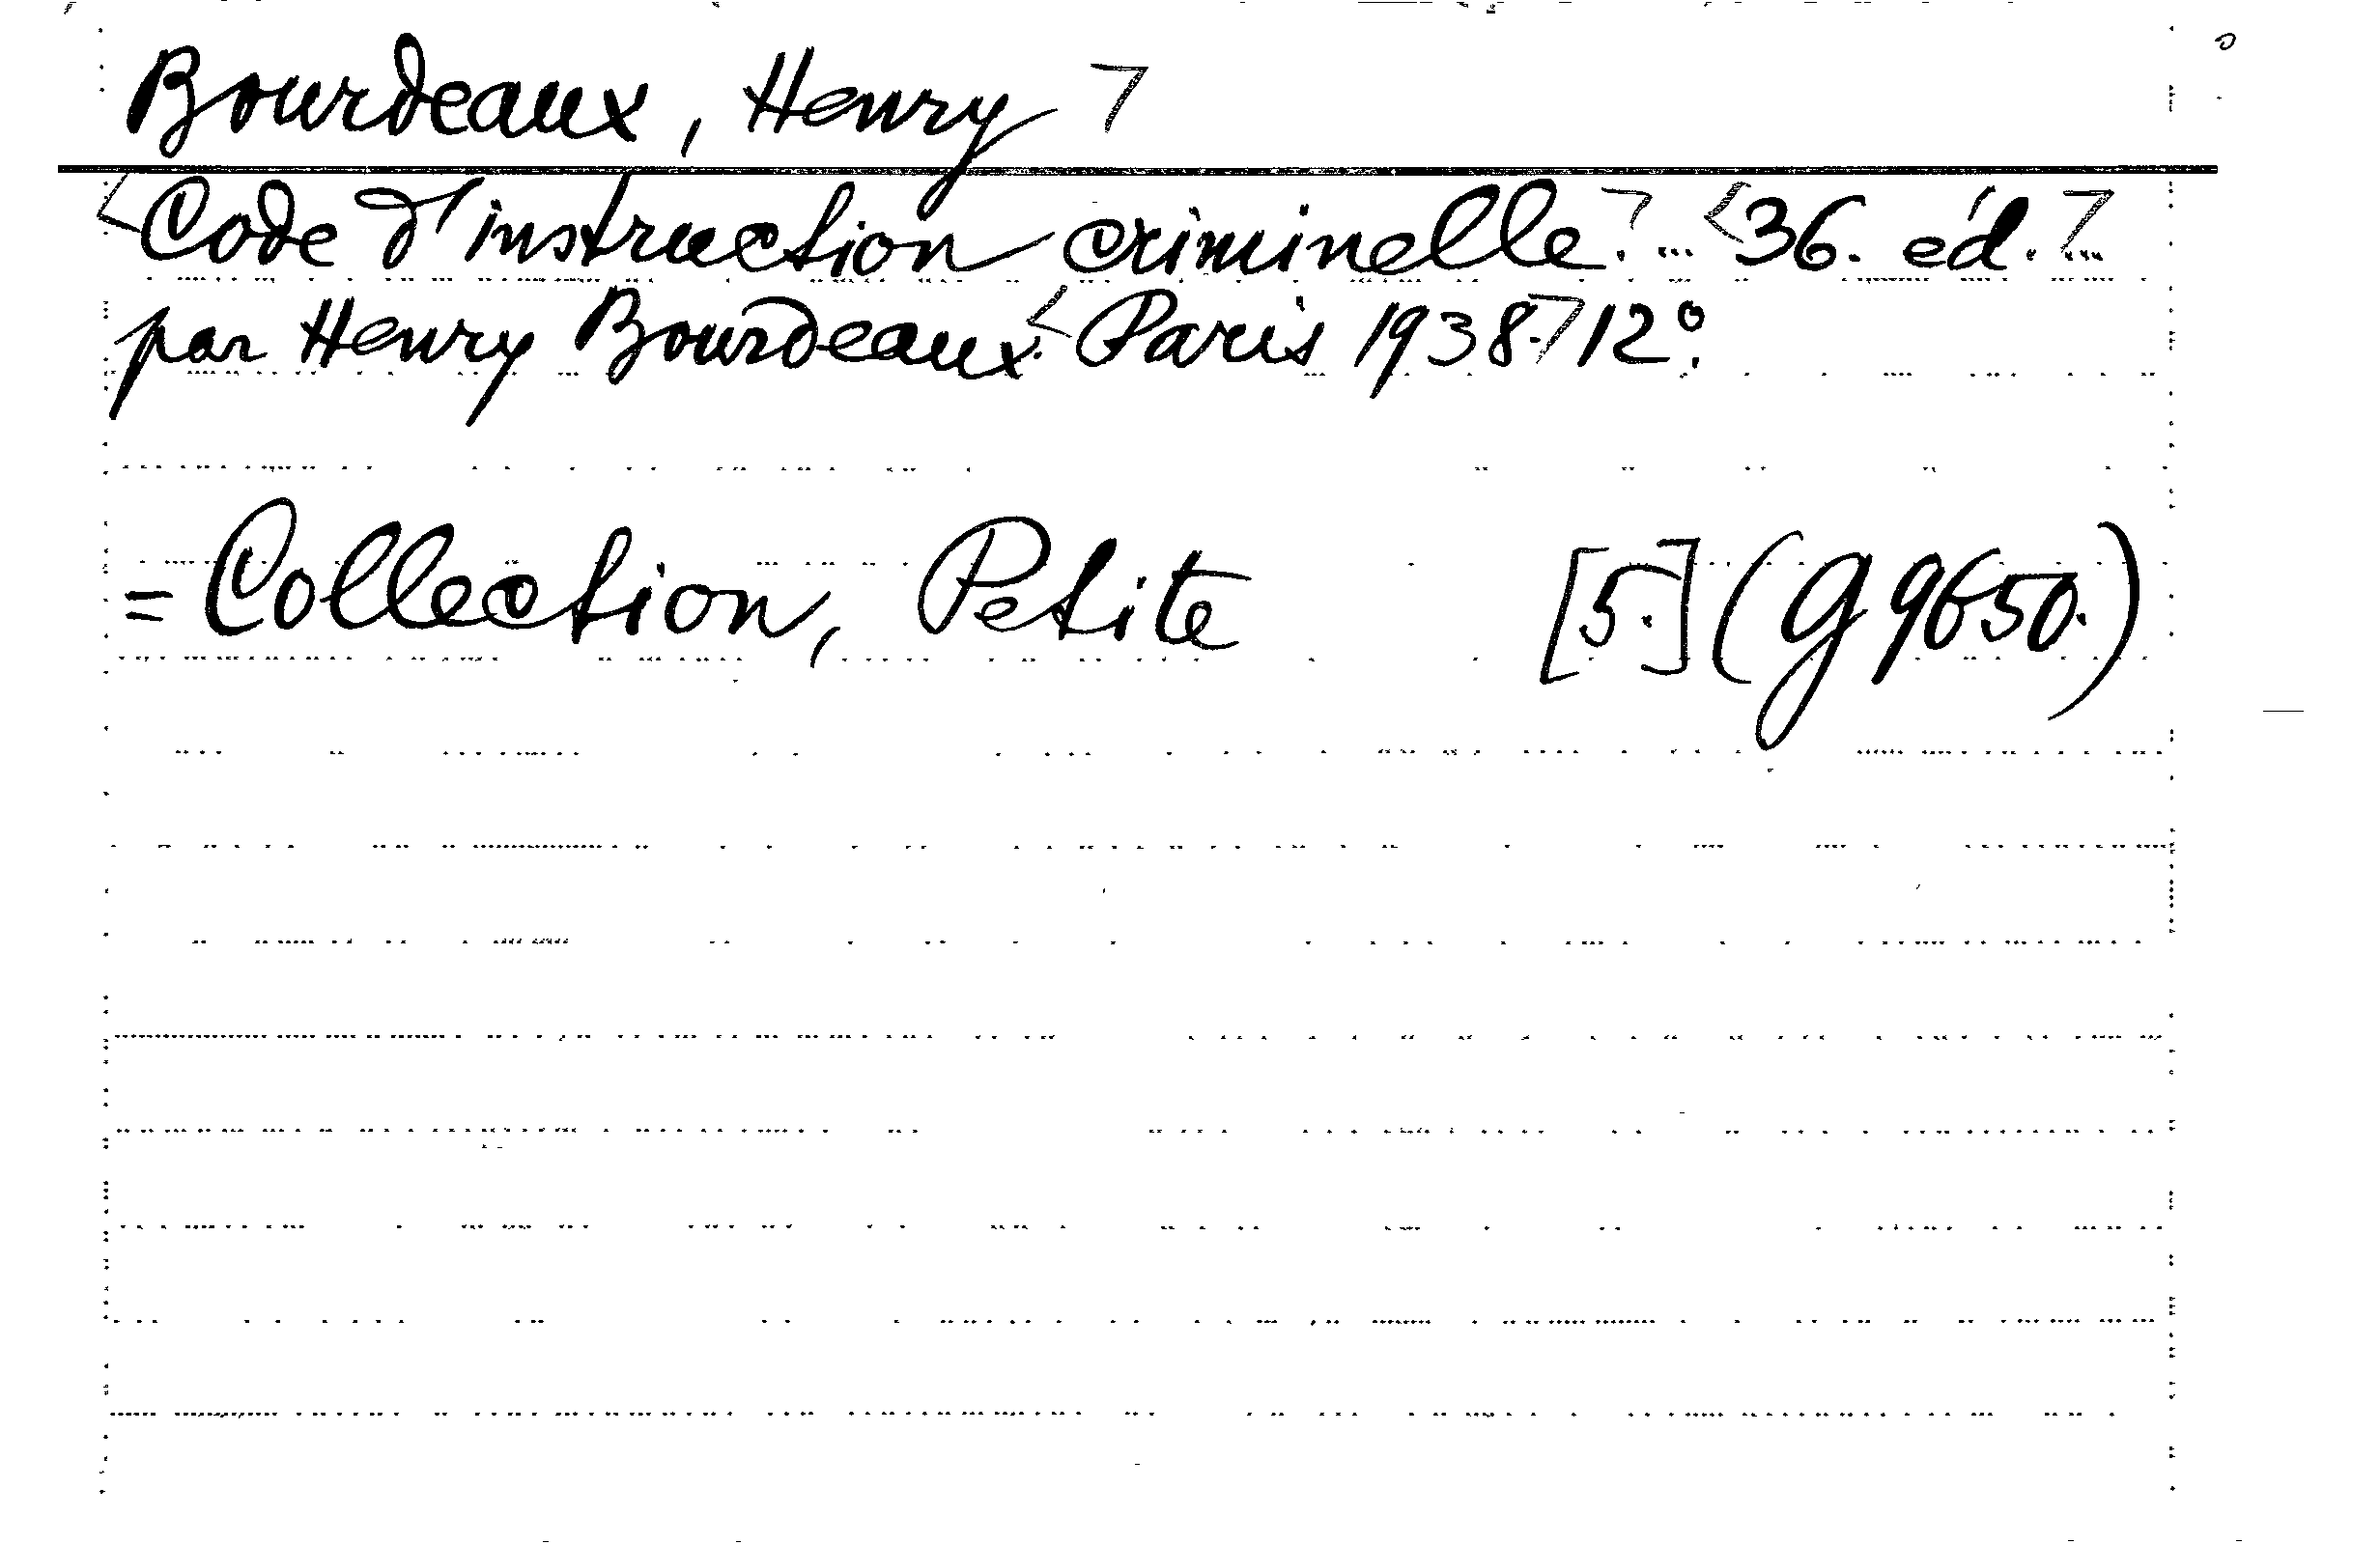 Bourdeaux, Henry
Code d'instruction criminelle. ... 36. éd. ...
par Henry Bourdeaux. Paris 1938. 12°.
= Collection, Petite [5.] (G 9650.)